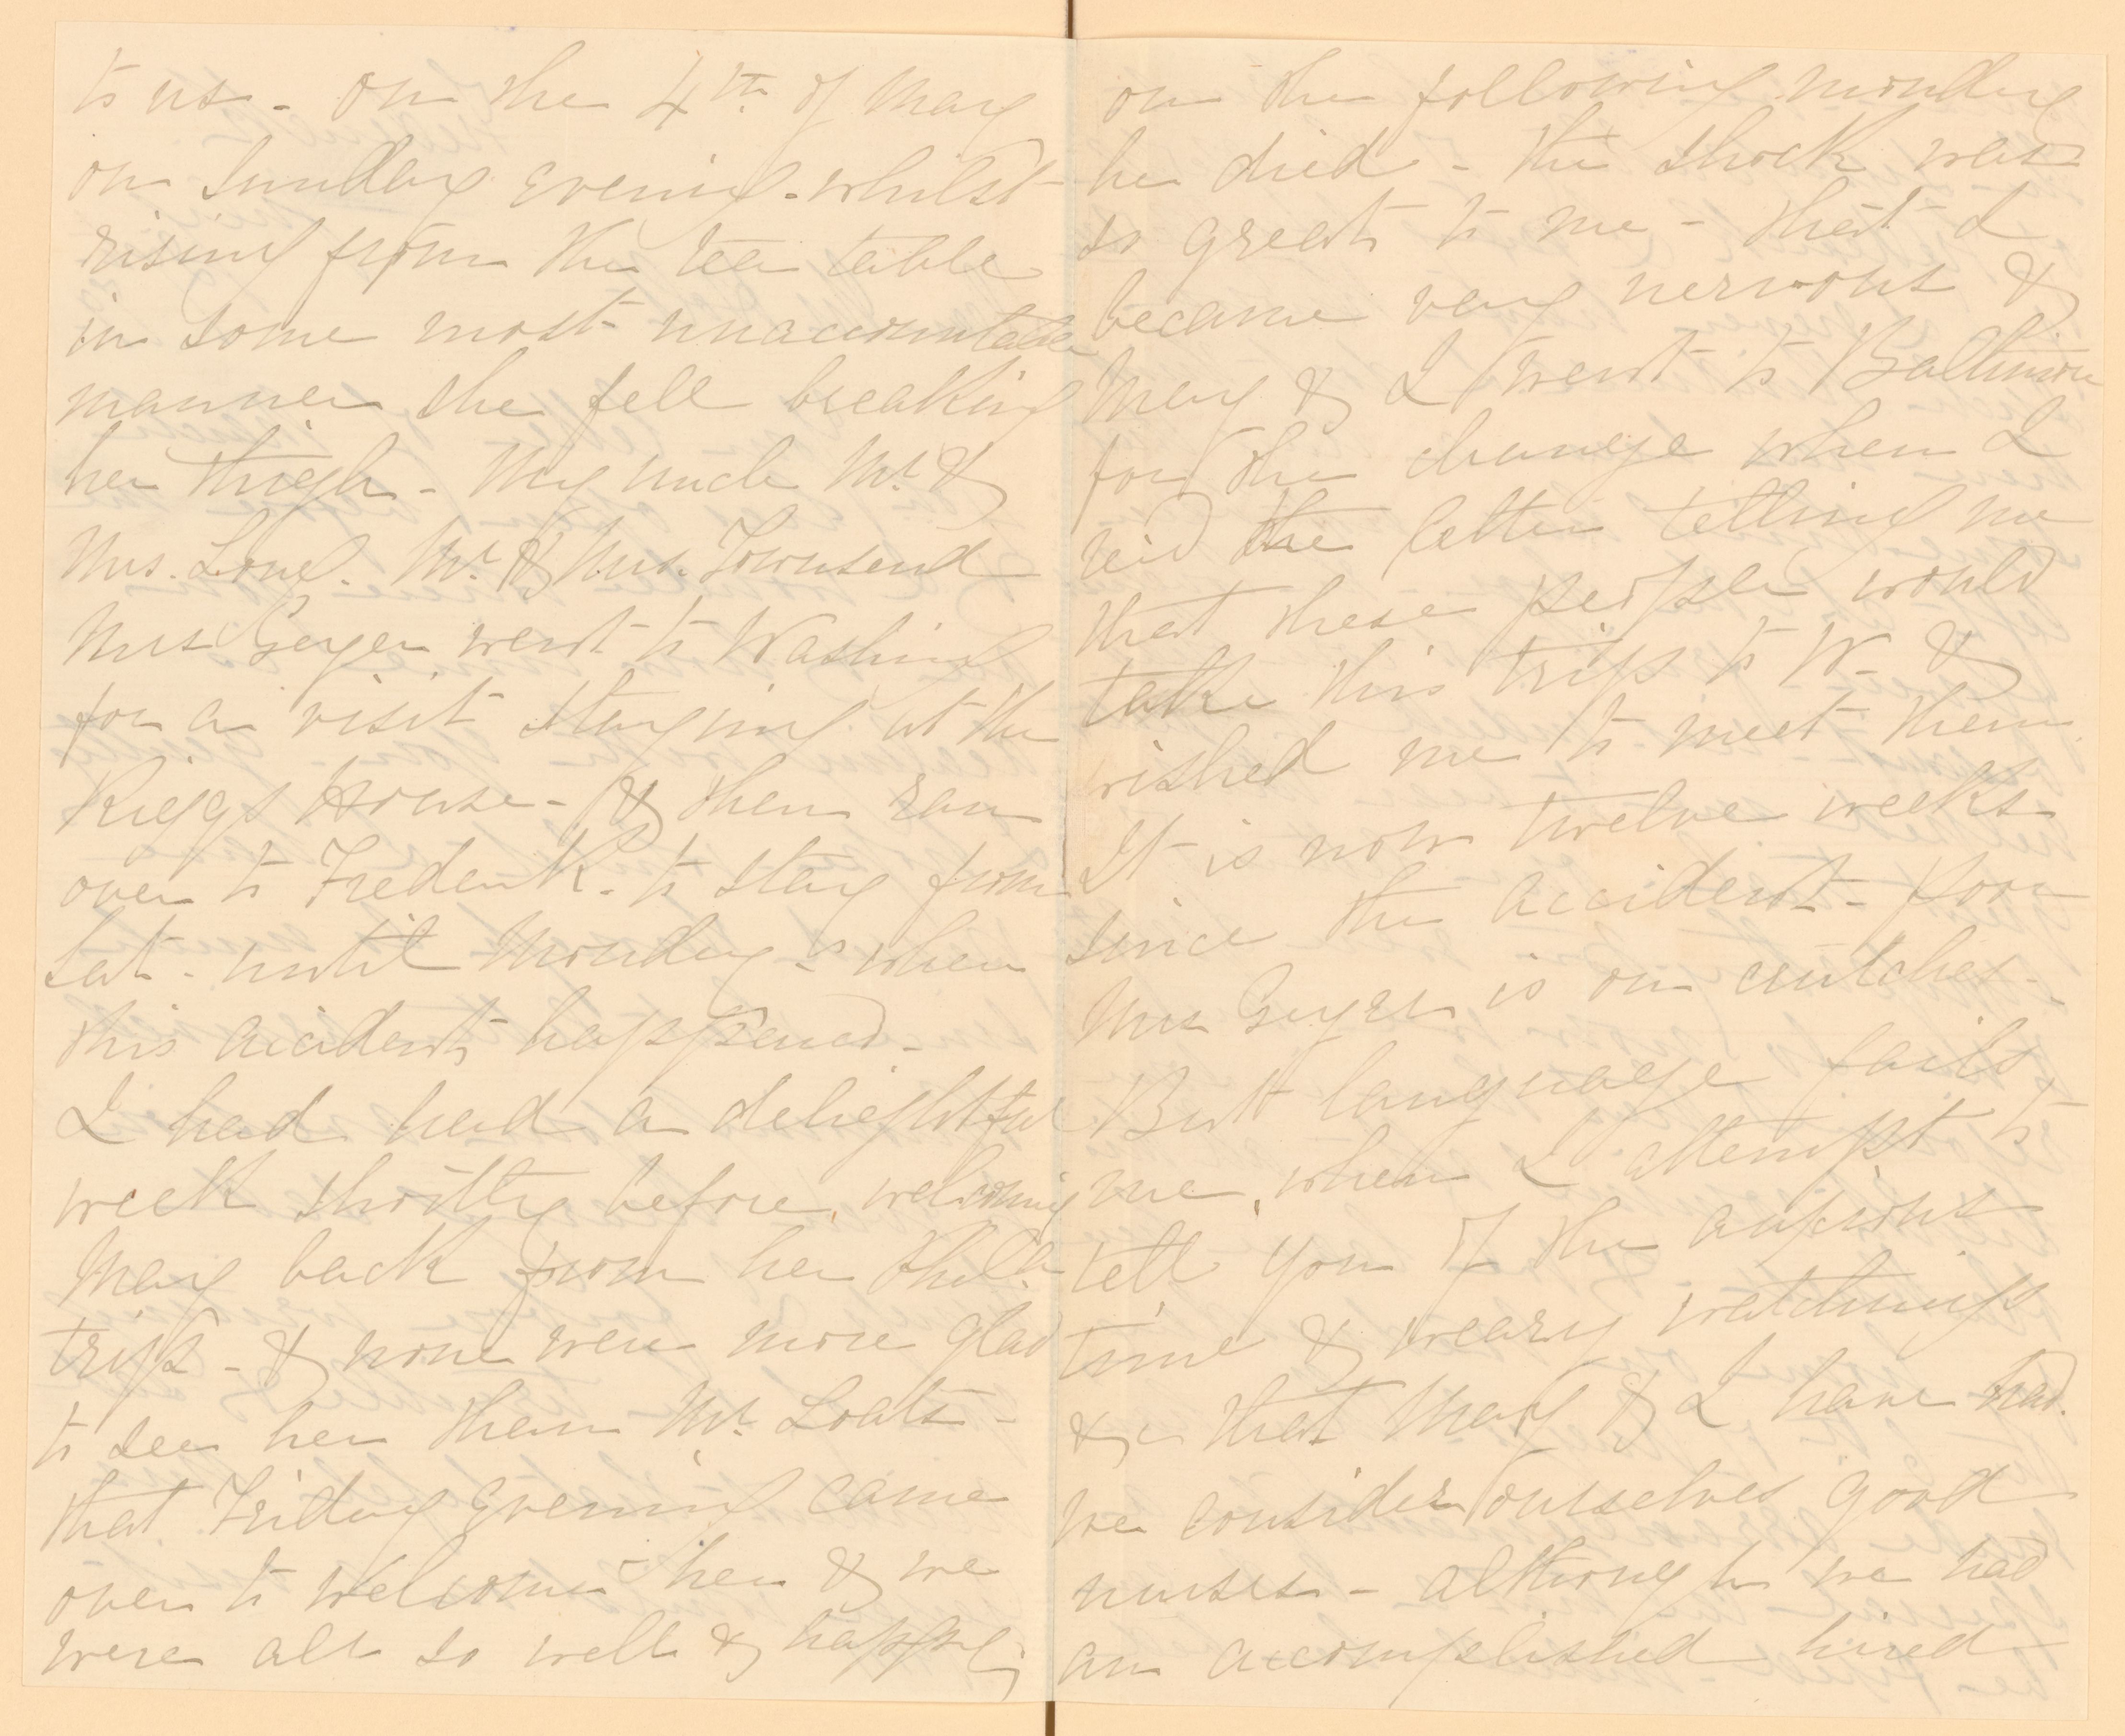 to us - on the 4th of May
on Sunday evening - whilst
rising from the tea table
in some most unaccountable
manner she fell breaking
her thigh - My uncle Mr. &
Mrs. Long. Mr. & Mrs. Townsend
Mrs Geyer went to Washing
for a visit staying at the
Riggs House - & then ran
over to Frederick - to stay from
Sat - until Monday - when
this accident happened -
I had had a delightful
week shortly before, welcoming
May back from her Phila
trip - & none were more glad
to see her them Mr. Loats -
that Friday evening came
over to welcome her & we
were all so well & happy;
on the following monday
he died - the shock was
so great to me - that I
became very nervous &
May & I went to Baltimore
for the change when I
recd the letter telling me
that these people would
take this trip to W. &
wished me to meet them.
It is now twelve weeks
since the accident - poor
Mrs Geyer is on crutches -
But language fails
me, when I attempt to
tell you of the anxious
time & weary watchings
&c that May & I have had.
we consider ourselves good
nurses - although we had
an accomplished hired